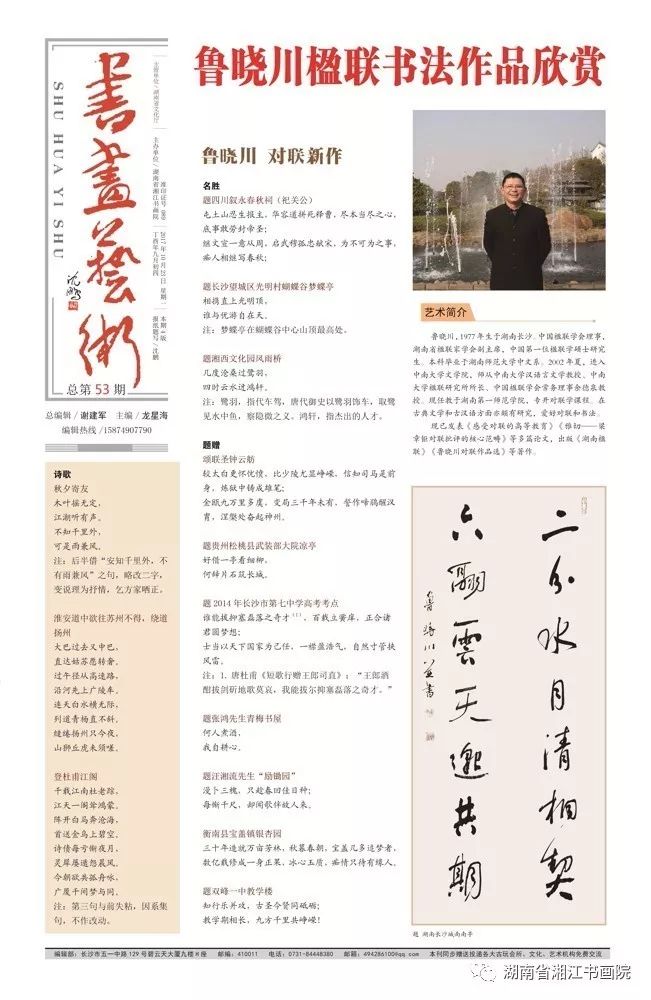 鲁晓川楹联书法作品欣赏
書畫藝術
SHU HUA YI SHU
沈鹏
主管单位/湖南省文化厅
主办单位/湖南省湘江书画院
2017年10月23日 星期一
丁酉年九月初四
本期4版
报纸题写/沈鹏
总第53期
总编辑/谢建军 主编/龙星海
编辑热线/15874907790
诗歌
秋夕寄友
木叶摇无定,
江湖听有声。
不知千里外,
可是雨兼风。
注:后半借“安知千里外,不
有雨兼风”之句,略改二字,
变说理为抒情,乞方家哂正。
淮安道中欲往苏州不得,绕道
扬州
大巴过去又中巴,
直达姑苏愿转奢。
过午径从高速路,
沿河先上广陵车。
连天白水横无际,
列道青杨直不斜。
缱绻扬州只今夜,
山狮丘虎未须嗟。
登杜甫江阁
千载江南杜老踪,
江天一阁耸鸿蒙。
阵开白马奔沧海,
首送金乌上碧空。
诗债每亏衡夜月,
灵犀屡遗怨晨风。
今朝欲共孤舟咏,
广厦千间梦与同。
注:第三句与前失粘,因系集
句,不作改动。
鲁晓川 对联新作
名胜
题四川叙永春秋祠(祀关公)
屯土山思生报主,华容道拼死释曹,尽本当尽之心,
底事敕劳封帝圣;
继文宣一意从周,启武穆孤忠献宋,为不可为之事,
痴人相继写春秋;
题长沙望城区光明村蝴蝶谷梦蝶亭
相携直上光明顶,
谁与优游自在天。
注:梦蝶亭在蝴蝶谷中心山顶最高处。
题湘西文化园风雨桥
几度沧桑过鹭羽,
四时云水送鸿轩。
注:鹭羽,指代车驾,唐代御史以鹭羽饰车,取鹭
见水中鱼,察隐微之义。鸿轩,指杰出的人才。
题赠
颂联圣钟云舫
较太白更怀忧愤,比少陵尤显峥嵘,信知司马是前
身,炼狱中铸成雄笔;
金瓯九万里多虞,变局三千年未有,誓作啼鹃醒汉
胄,涅槃处奋起神州。
题贵州松桃县武装部大院凉亭
好借一亭看细柳,
何辞片石筑长城。
题2014年长沙市第七中学高考考点
谁能拔抑塞磊落之奇才[1],百载立黉庠,正合诸
君圆梦想;
士当以天下国家为己任,一襟盈浩气,自然寸管挟
风雷。
注:1.唐杜甫《短歌行赠王郎司直》:“王郎酒
酣拔剑斫地歌莫哀,我能拔尔抑塞磊落之奇才。”
题张鸿先生青梅书屋
何人煮酒,
我自耕心。
题汪湘流先生“励锄园”
漫卜三槐,只趁春回佳日种;
每惭千尺,却闻歌伴故人来。
衡南县宝盖镇银杏园
三十年造就万亩芳林,秋慕春朝,宝盖几多追梦者,
数亿载修成一身正果,冰心玉质,痴情只待有缘人。
题双峰一中教学楼
知行乐并攻,古圣今贤同砥砺;
教学期相长,九方千里共峥嵘!
艺术简介
鲁晓川,1977年生于湖南长沙。中国楹联学会理事,
湖南省楹联家学会副主席,中国第一位楹联学硕士研究
生。本科毕业于湖南师范大学中文系。2002年夏,进入
中南大学文学院,师从中南大学汉语言文学教授、中南
大学楹联研究所所长、中国楹联学会常务理事余德泉教
授。现任教于湖南第一师范学院,专开对联学课程。在
古典文学和古汉语方面亦颇有研究,爱好对联和书法。
现已发表《感受对联的高等教育》《雅切——梁
章钜对联批评的核心范畴》等多篇论文,出版《湖南楹
联》《鲁晓川对联作品选》等著作。
二分水月清相契
六翮雲天邀共期
鲁晓川並書
题 湖南长沙城南南亭
编辑部:长沙市五一中路129号碧云天大厦九楼H座 邮编:410011 电话:0731-84448380 邮箱:494286100@qq.com 本刊同步赠送投递各大古玩会所、文化、艺术机构免费交流
湖南省湘江书画院